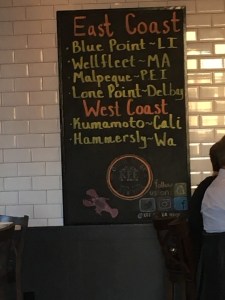 East Coast
• Blue Point~LI
• Wellfleet~MA
• Malpeque~PEI
• Lone Point~Delbay
West Coast
• Kumamoto~Cali
• Hammersly~Wa
follow
us on